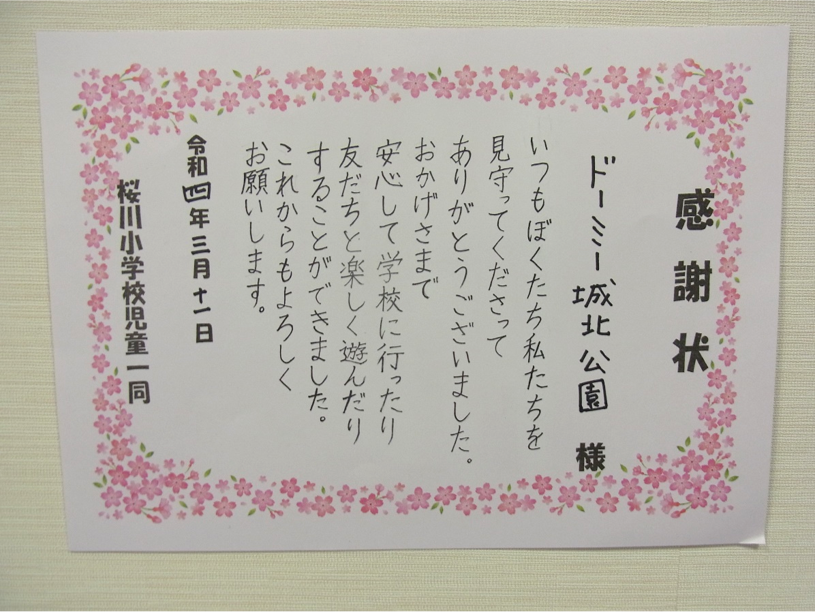 感謝状
ドーミー城北公園 様
いつもぼくたち私たちを
見守ってくださって
ありがとうございました。
おかげさまで
安心して学校に行ったり
友だちと楽しく遊んだり
することができました。
これからもよろしく
お願いします。
令和四年三月十一日
桜川小学校児童一同